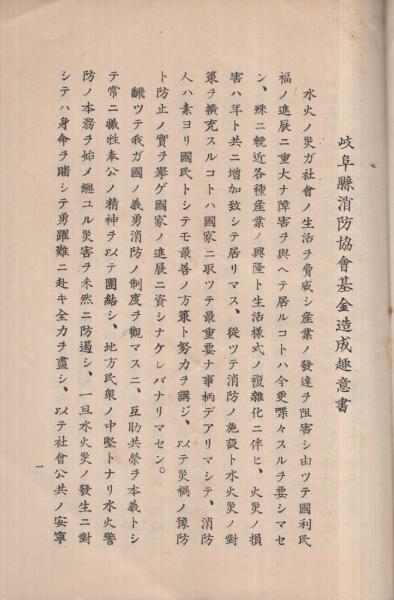 岐阜縣消防協會基金造成趣意書
水火ノ災ガ社會ノ生活ヲ脅威シ産業ノ發達ヲ阻害シ由ツテ國利民
福ノ進展ニ重大ナ障害ヲ與ヘテ居ルコトハ今更喋々スルヲ要シマセ
ン、殊ニ輓近各種産業ノ興隆ト生活様式ノ複雜化ニ伴ヒ、火災ノ損
害ハ年ト共ニ增加致シテ居リマス、從ツテ消防ノ施設ト水火災ノ對
策ヲ擴充スルコトハ國家ニ取ツテ最重要ナ事柄デアリマシテ、消防
人ハ素ヨリ國民トシテモ最善ノ方策ト努力ヲ講ジ、以テ災禍ノ豫防
ト防止ノ實ヲ擧ゲ國家ノ進展ニ資シナケレバナリマセン。
飜ツテ我ガ國ノ義勇消防ノ制度ヲ觀マスニ、互助共榮ヲ本義トシ
テ常ニ犠牲奉公ノ精神ヲ以テ團結シ、地方民衆ノ中堅トナリ水火警
防ノ本務ヲ始メ總ユル災害ヲ未然ニ防遏シ、一旦水火災ノ發生ニ對
シテハ身命ヲ賭シテ勇躍難ニ赴キ全力ヲ盡シ、以テ社會公共ノ安寧
一